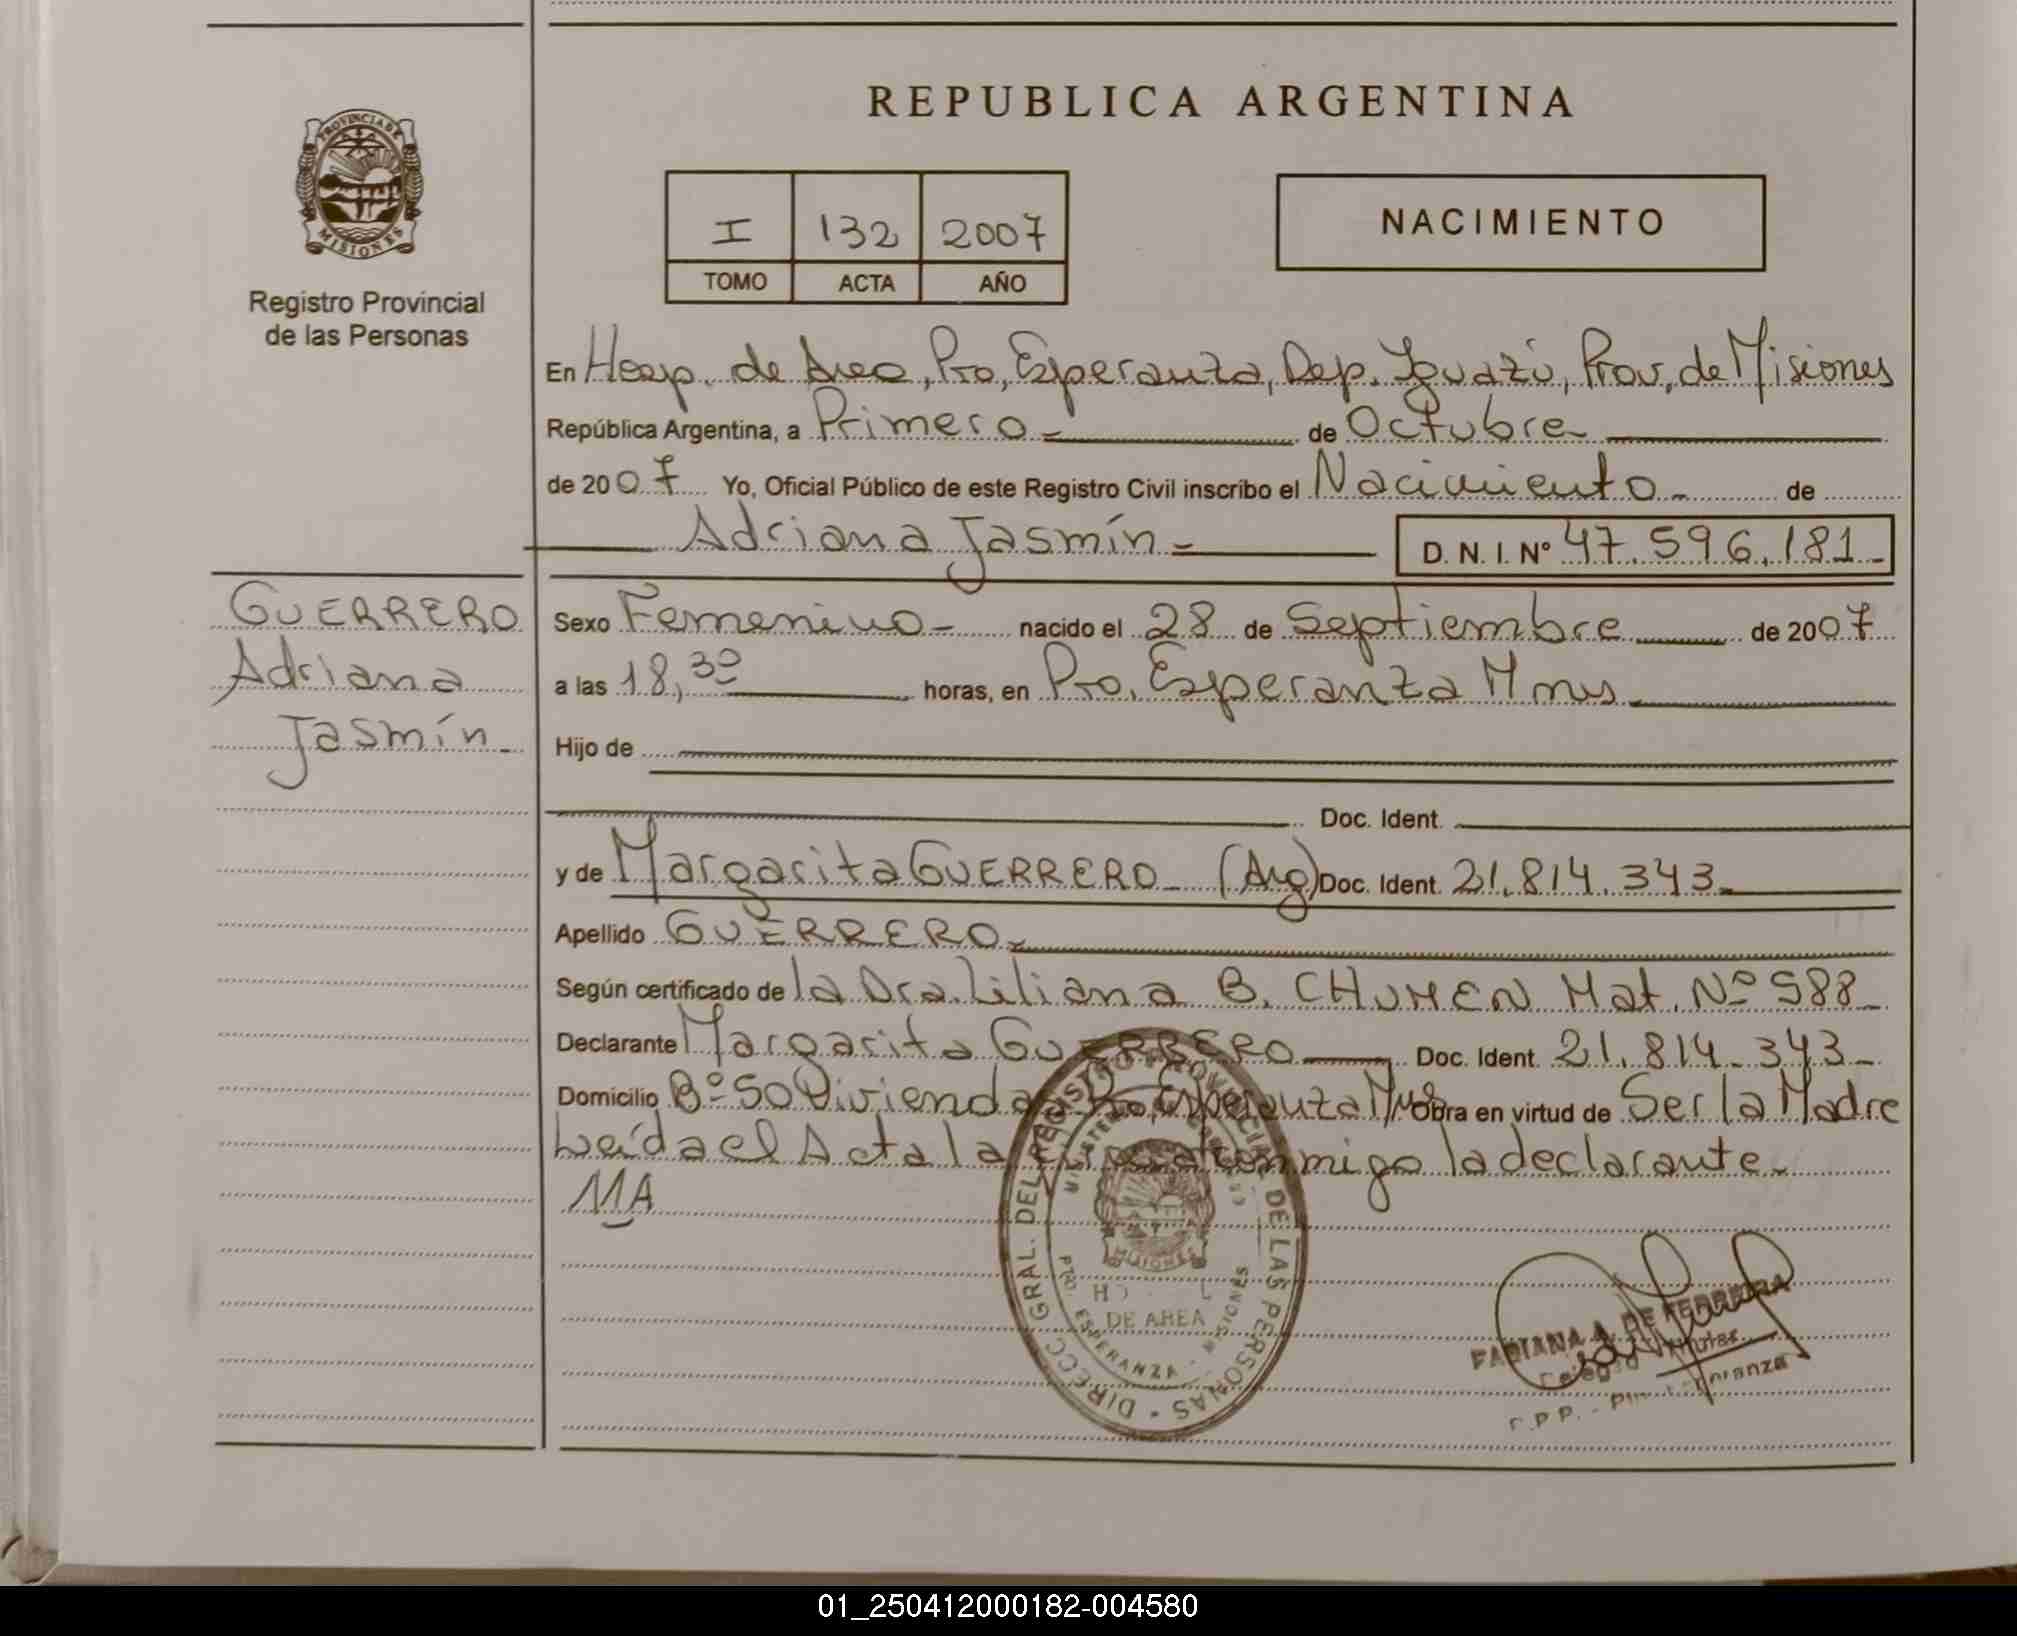 REPUBLICA ARGENTINA
PROVINCIA DE
MISIONES
Registro Provincial
de las Personas
I 132 2007
TOMO ACTA AÑO
NACIMIENTO
En Hosp. de Area, Pto, Esperanza, Dep. Iguazú, Prov. de Misiones
República Argentina, a Primero de Octubre
de 2007 Yo, Oficial Público de este Registro Civil inscribo el Nacimiento de
Adriana Jasmín
D. N. I. Nº 47.596.181
GUERRERO
Adriana
Jasmín
Sexo Femenino nacido el 28 de Septiembre de 2007
a las 18,30 horas, en Pto. Esperanza Mnes
Hijo de
Doc. Ident.
y de Margarita GUERRERO (Arg) Doc. Ident. 21.814.343
Apellido GUERRERO
Según certificado de la Dra. Liliana B. CHUMEN Mat. Nº 588
Declarante Margarita GUERRERO Doc. Ident. 21.814.343
Domicilio Bº 50 Viviendas Pto, Esperanza Mnes Obra en virtud de Ser la Madre
Leída el Acta la conmigo la declarante
MA
DIRECC. GRAL. DEL REGISTRO PROVINCIAL DE LAS PERSONAS
MISIONES
DE AREA
PTO. ESPERANZA - MISIONES
FABIANA A. DE FERREIRA
Titular
R.P.P. -
01_250412000182-004580